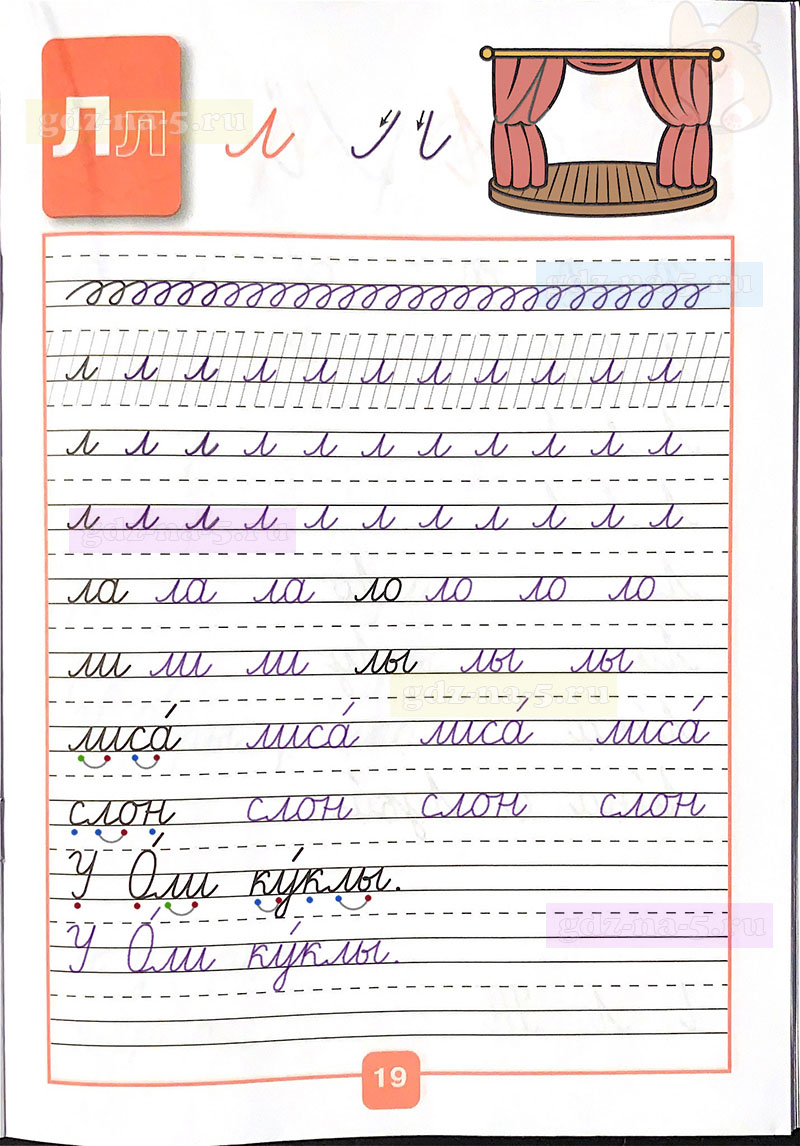 Лл л
л л л л л л л л л л л
л л л л л л л л л л л
л л л л л л л л л л л
ла ла ла ло ло ло ло
ли ли ли лы лы лы
лиса́ лиса́ лиса́ лиса́
слон слон слон слон
У О́ли ку́клы.
У О́ли ку́клы.
19
gdz-na-5.ru
gdz-na-5.ru
gdz-na-5.ru
gdz-na-5.ru
gdz-na-5.ru